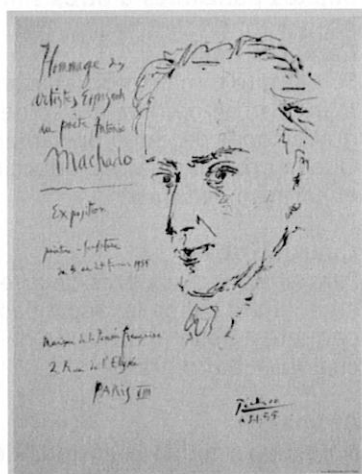 Hommage des
artistes Espagnols
au poète Antonio
Machado
Exposition
peinture - sculpture
du 4 au 24 février 1955
Maison de la Pensée Française
2 Rue de l'Elysée
PARIS VIII
Picasso
3.1.55